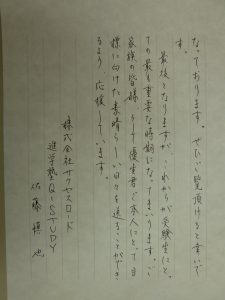 なっております。ぜひご覧頂けると幸いで
す。
最後となりますが、これからが受験生にと
ての最も重要な時期になってまいります。ご
家族の皆様、そして優生君ご本人にとって目
標に向けた素晴らしい日々を送ることができ
るよう、応援しています。
株式会社サクセスロード
進学塾Q-STUDY
佐藤 慎也